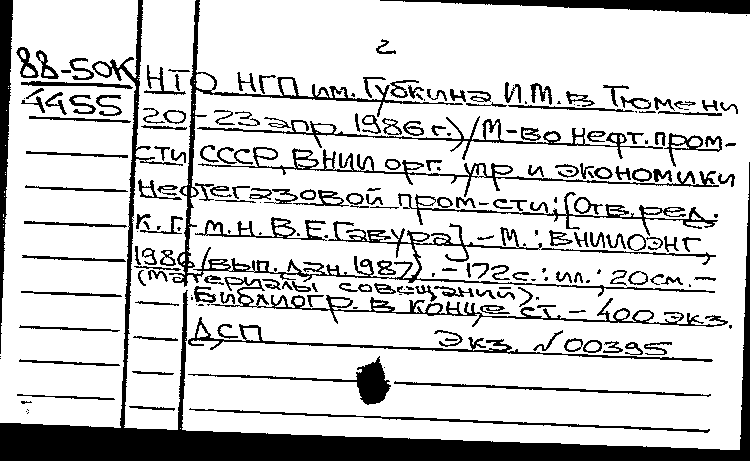 2
88-50К
4455
НТО НГП им. Губкина И.М. в Тюмени
20-23 апр. 1986 г.) / М-во нефт. пром-
сти СССР, ВНИИ орг., упр. и экономики
нефтегазовой пром-сти; [Отв. ред.
к. г.-м. н. В.Е. Гавура]. - М. : ВНИИОЭНГ,
1986 / вып. дан. 1987). - 172 с. : ил. ; 20 см. -
(Материалы совещаний).
Библиогр. в конце ст. - 400 экз.
ДСП Экз. №00395